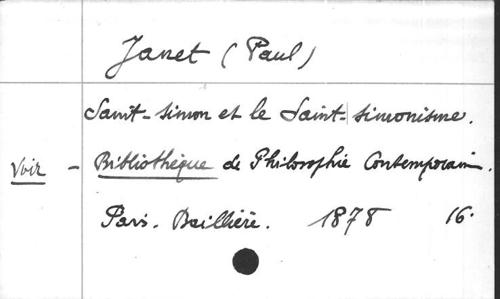 Janet (Paul)
Saint-Simon et le Saint-simonisme.
Voir - Bibliothèque de Philosophie Contemporain.
Paris. Baillière. 1878 16.